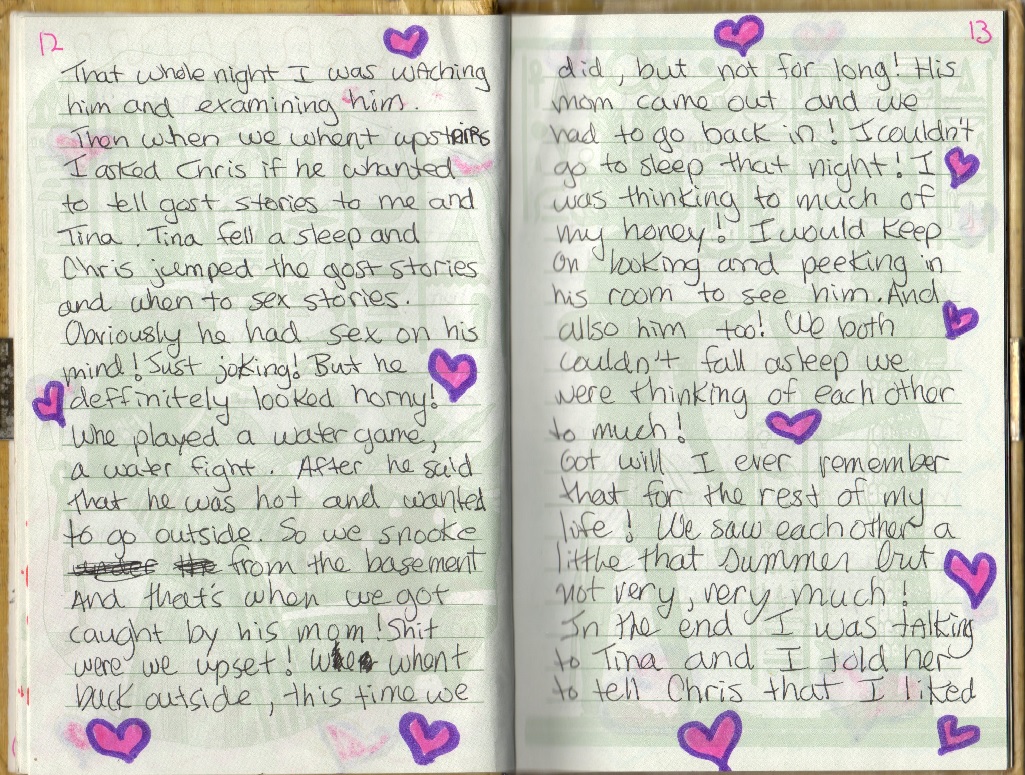 12
That whole night I was wAching
him and examining him.
Then when we whent upstairs
I asked Chris if he whanted
to tell gost stories to me and
Tina. Tina fell a sleep and
Chris jumped the gost stories
and when to sex stories.
Obviously he had sex on his
mind! Just joking! But he
deffinitely looked horny!
Whe played a water game,
a water fight. After he said
that he was hot and wanted
to go outside. So we snooke
from the basement
And that's when we got
caught by his mom! Shit
were we upset! We whent
back outside, this time we
13
did, but not for long! His
mom came out and we
had to go back in! I couldn't
go to sleep that night! I
was thinking to much of
my honey! I would keep
on looking and peeking in
his room to see him. And
allso him too! We both
couldn't fall asleep we
were thinking of each other
to much!
Got will I ever remember
that for the rest of my
life! We saw eachother a
litthe that summer but
not very, very much!
In the end I was tAlking
to Tina and I told her
to tell Chris that I liked